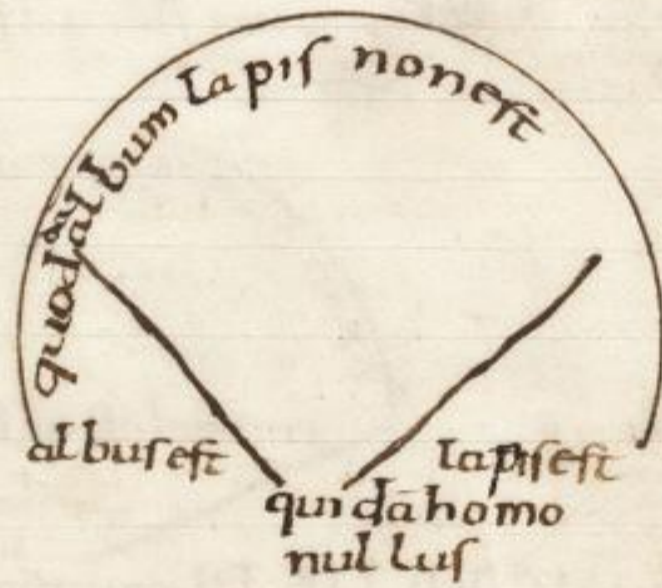 quoddā album lapis non est
albus est
lapis est
quidā homo
nullus